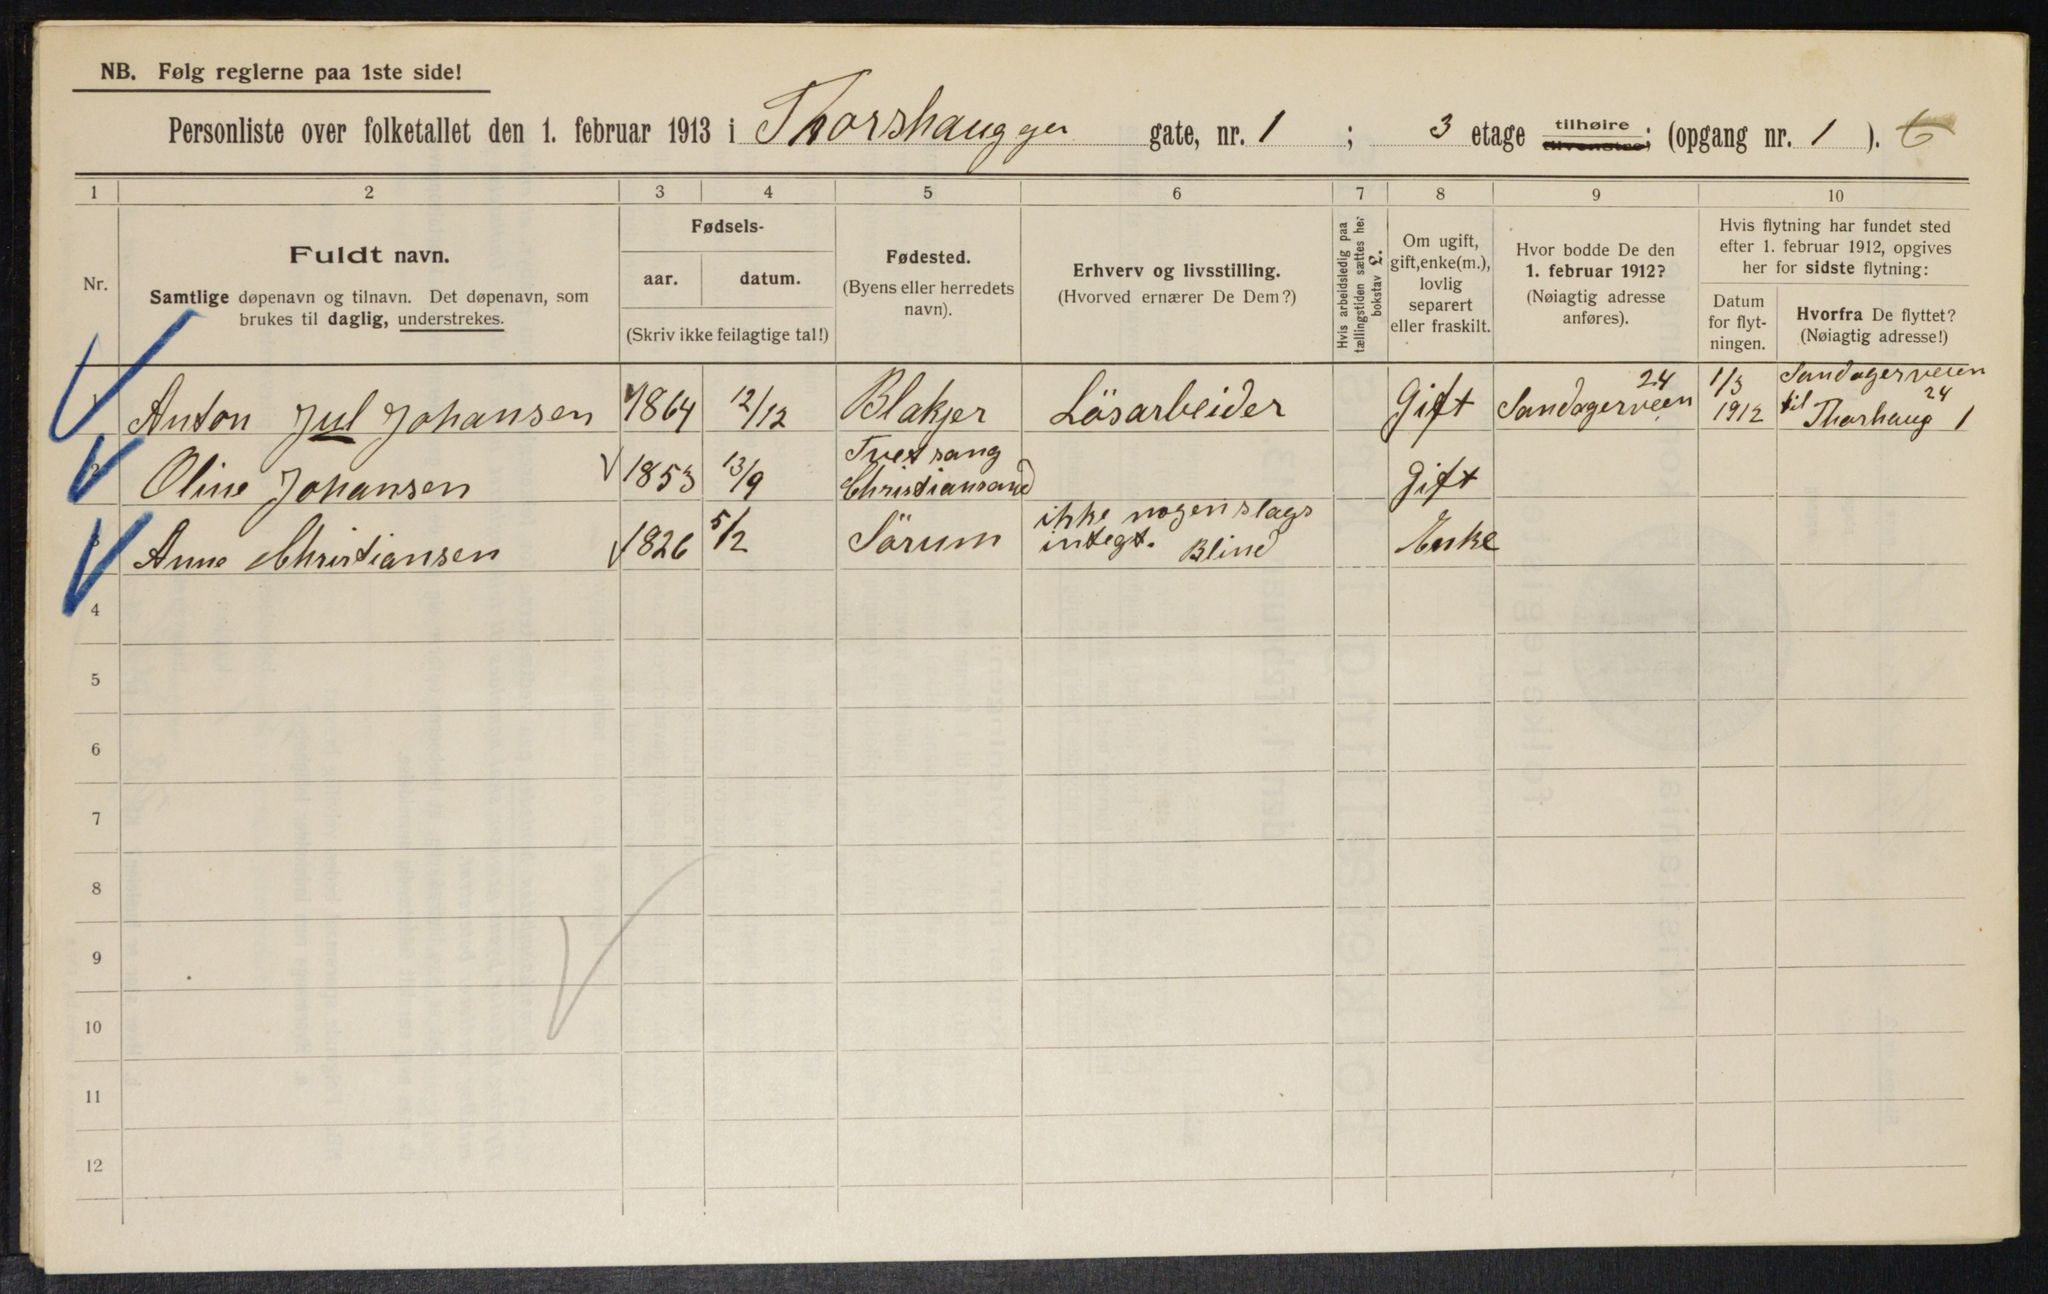 NB. Følg reglerne paa 1ste side!
Personliste over folketallet den 1. februar 1913 i Thorshauggen gate, nr. 1 ; 3 etage tilhøire tilvenstre; (opgang nr. 1 ). 6
1 2 3 4 5 6 7 8 9 10
Nr.
Fuldt navn.
Samtlige døpenavn og tilnavn. Det døpenavn, som
brukes til daglig, understrekes.
Fødsels-
aar. datum.
(Skriv ikke feilagtige tal!)
Fødested.
(Byens eller herredets
navn).
Erhverv og livsstilling.
(Hvorved ernærer De Dem?)
Hvis arbeidsledig paa
tællingstiden sættes her
bokstav L.
Om ugift,
gift, enke(m.),
lovlig
separert
eller fraskilt.
Hvor bodde De den
1. februar 1912?
(Nøiagtig adresse
anføres).
Hvis flytning har fundet sted
efter 1. februar 1912, opgives
her for sidste flytning:
Datum
for flyt-
ningen.
Hvorfra De flyttet?
(Nøiagtig adresse!)
1 Anton Jul Johansen 1864 12/12 Blakjer Lösarbeider Gift Sandagerveen 24 1/3 1912 Sandagerveien 24 til Thorhaug 1
2 Oline Johansen 1853 13/9 Tvetsang Christiansand Gift
3 Anne Christiansen 1826 5/2 Sörum ikke nogenslags integt. Blind Enke
4
5
6
7
8
9
10
11
12